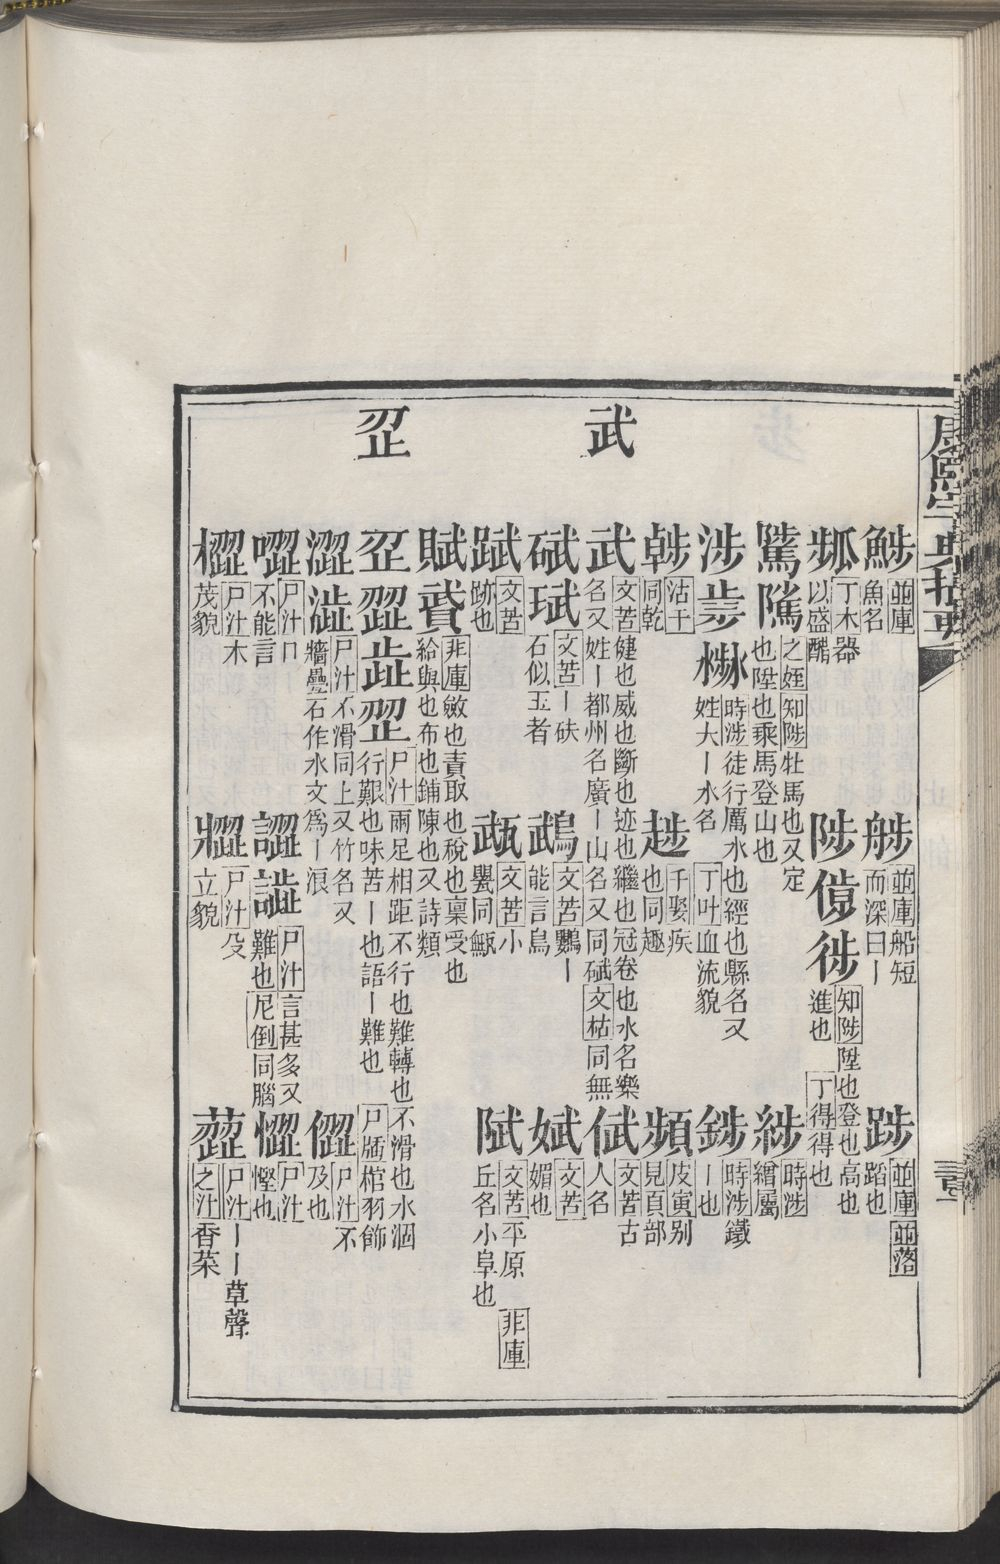 康熙字典撮要
武
歰
並庫魚名 並庫船短而深曰丨 踄並庫並落蹈也
丁木器以盛醋 陟徏知陟陞也登也高也進也丁得得也
騭之姪知陟牡馬也又定也陞也乘馬登山也 時涉繒屬
涉時涉徒行厲水也經也縣名又姓大丨水名丁叶血流貌 時涉鐵丨也
沽干同乾 千娶疾也同趣 頻皮寅別見頁部
武文苦健也威也斷也迹也繼也冠卷也水名樂名又姓丨都州名廣丨山名又同碔文枯同無 文苦古人名
碔珷文苦丨砆石似玉者 鵡文苦鸚丨能言鳥 娬文苦媚也
文苦跡也 文苦小甖同甒 文苦平原丘名小阜也非庫
賦非庫斂也責取也稅也稟受也給與也布也鋪陳也又詩類
歰歮尸汁兩足相距不行也難轉也不滑也水涸行艱也味苦丨也語丨難也尸牐棺羽飾
澀澁尸汁不滑同上又竹名又牆疊石作水文爲丨浪 尸汁不及也
尸汁口不能言 譅尸汁言甚多又難也尼倒同腦 尸汁慳也
尸汁木茂貌 尸汁殳立貌 尸汁丨丨草聲之汁香菜